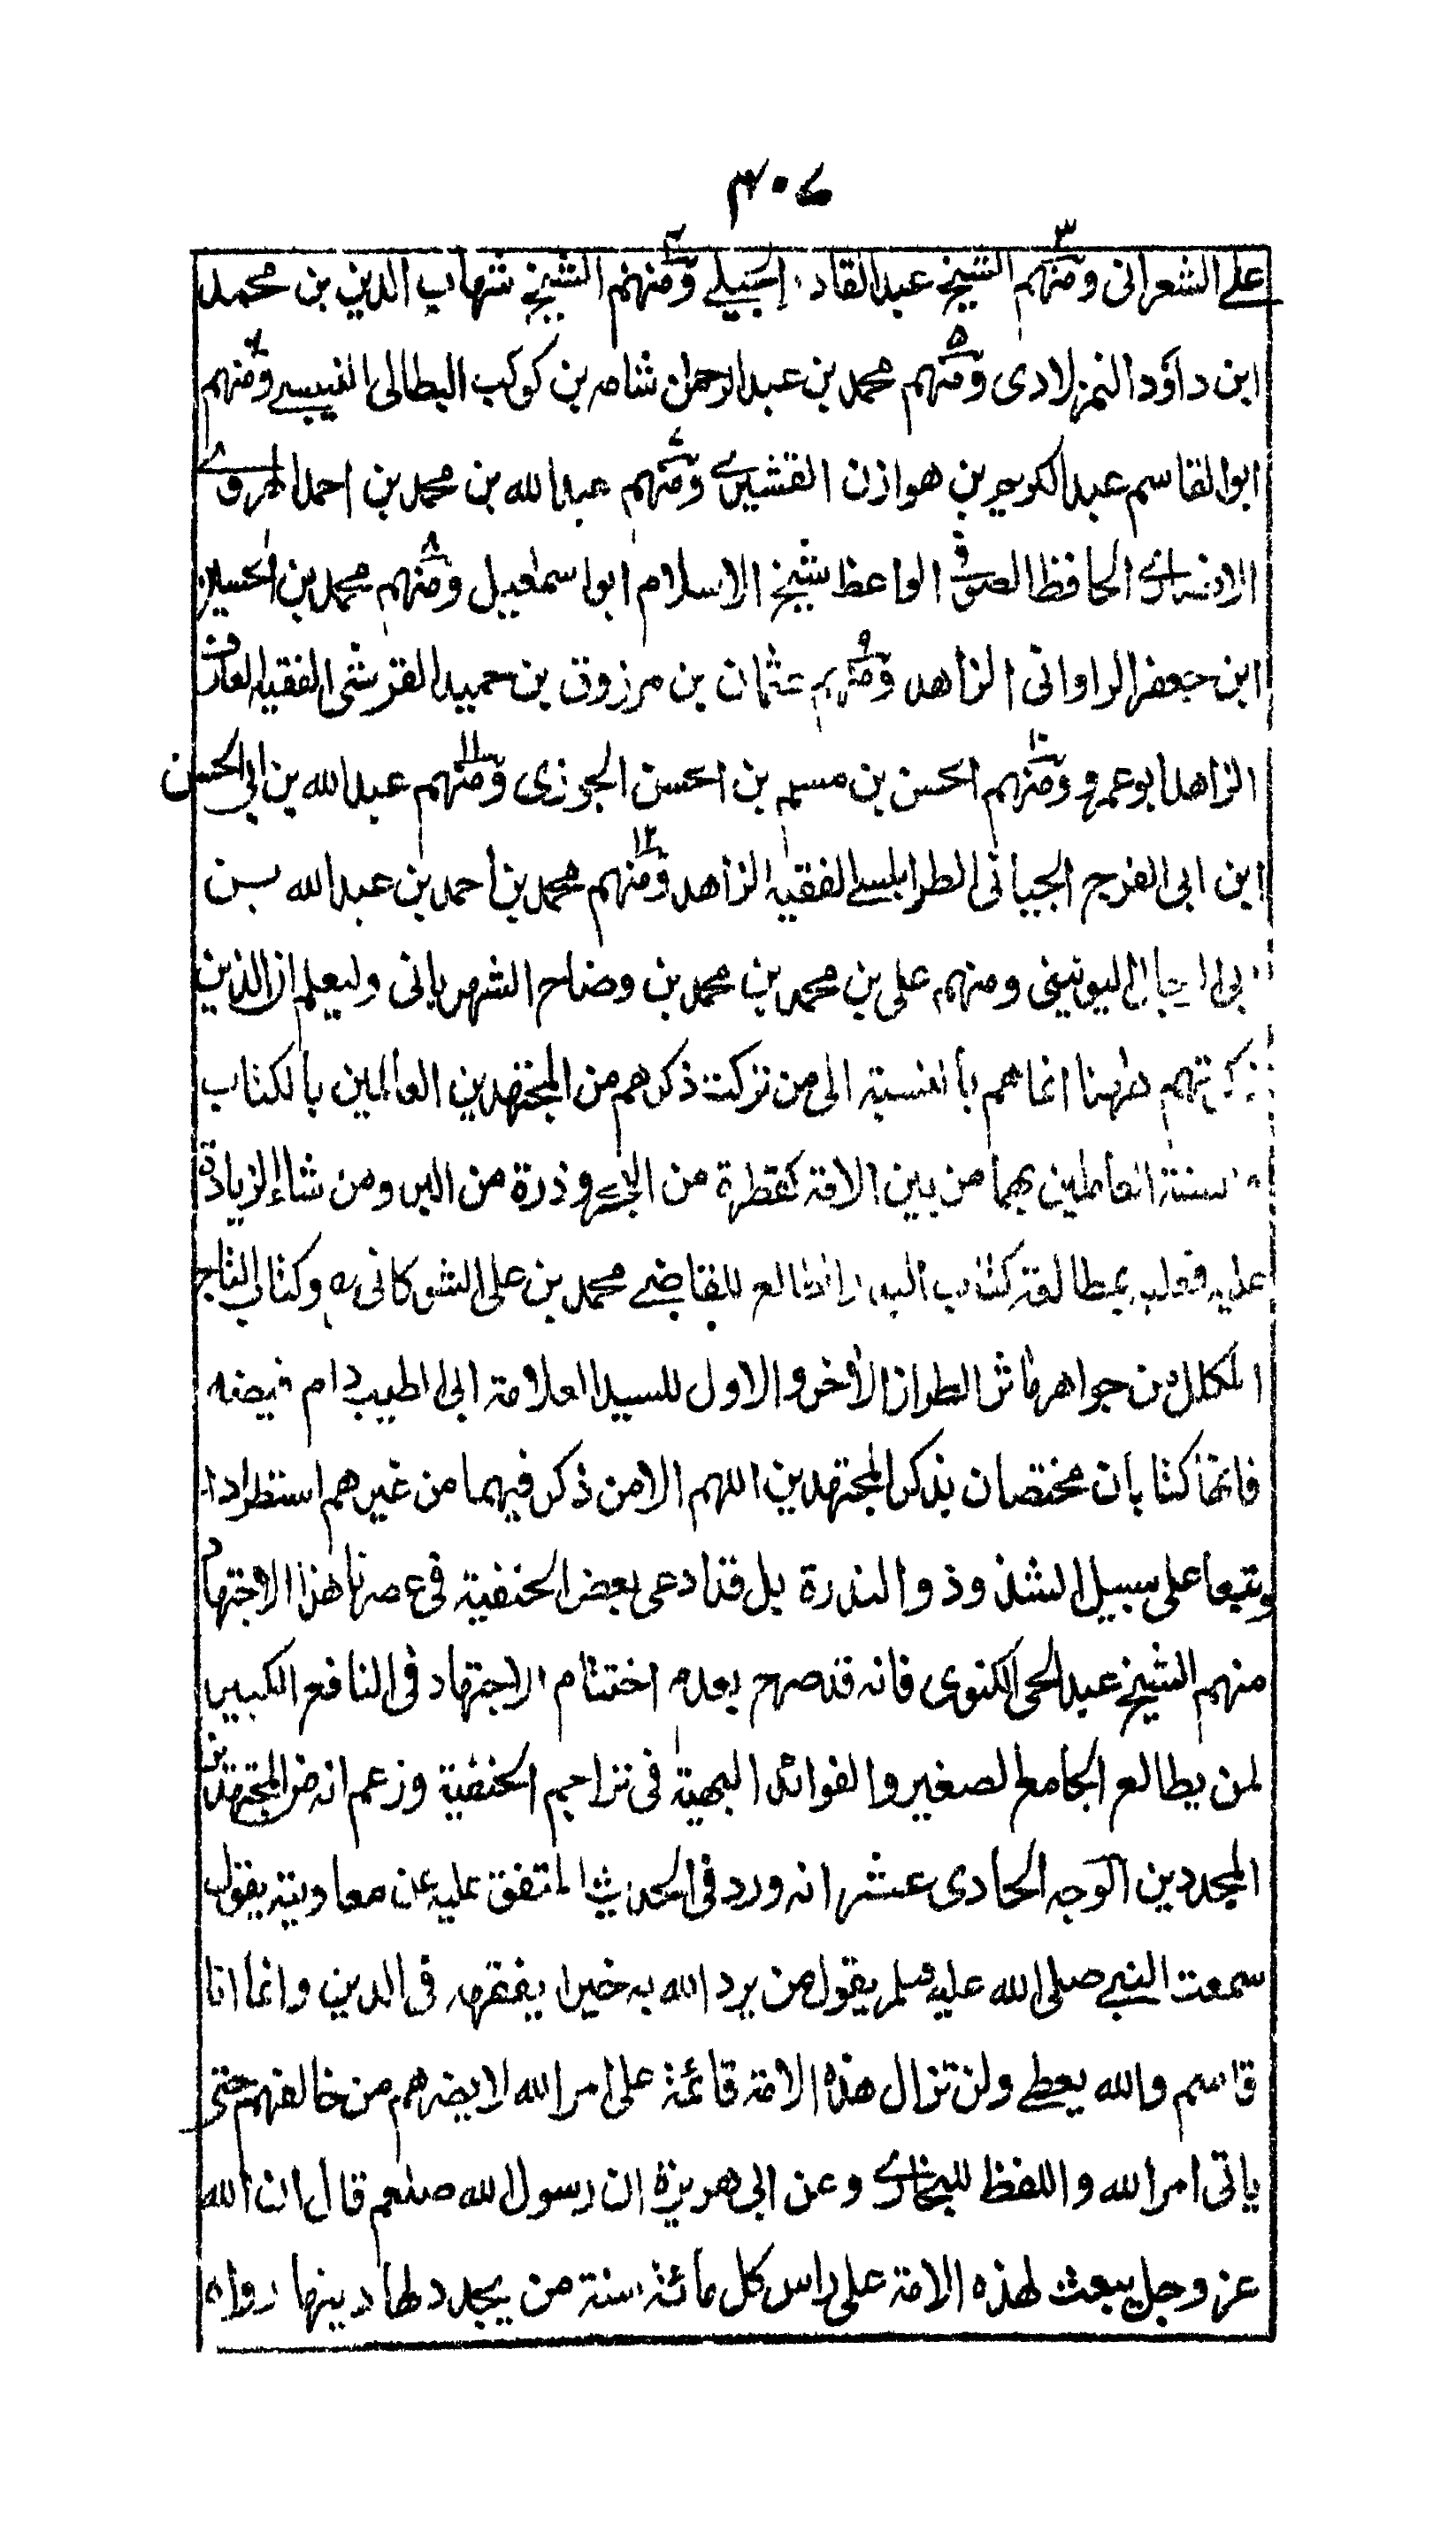 ٣٠٧
على الشعرانى ومنهم٣ الشيخ عبد القادر الجيلے ومنهم٤ الشيخ شهاب الدين بن محمد
ابن داؤد المنزلادى ومنهم٥ محمد بن عبد الرحمن شامه بن كوكب البطالى النفيسے ومنهم٦
ابو القاسم عبد الكريم بن هوازن القشيرے ومنهم٧ عبد الله بن محمد بن احمد الهروے
الانصارے الحافظ الصوفى الواعظ شيخ الاسلام ابو اسمعيل ومنهم٨ محمد بن الحسين
ابن جعفر الراوانى الزاهد ومنهم٩ عثمان بن مرزوق بن حميد القرشى الفقيه العارف
الزاهد ابو عمرو ومنهم١٠ الحسن بن مسلم بن الحسن الجوزى ومنهم١١ عبد الله بن ابى الحسن
ابن ابى الفرج الجبانى الطرابلسے الفقيه الزاهد ومنهم١٢ محمد بن أحمد بن عبد الله بن
ابى الرجال اليونينى ومنهم على بن محمد بن محمد بن وضاح الشهربانى وليعلم ان الذين
ذكرتهم ههنا انما هم بالنسبة الى من تركت ذكرهم من المجتهدين العالمين بالكتاب
والسنة العاملين بهما من بين الامة كقطرة من البحر وذرة من البر ومن شاء الزيادة
عليه فعليه بمطالعة كتاب البدر الطالع للقاضے محمد بن على الشوكانى رح وكتاب التاج
المكلل من جواهر مآثر الطراز الآخر والاول للسيد العلامة ابى الطيب دام فيضه
فانهما كتابان مختصان بذكر المجتهدين اللهم الا من ذكر فيهما من غيرهم استطرادا
وتبعا على سبيل الشذوذ والندرة بل قد ادعى بعض الحنفية فى عصرنا هذا الاجتهاد
منهم الشيخ عبد الحى الكنوى فانه قد صرح بعدم اختتام الاجتهاد فى النافع الكبير
لمن يطالع الجامع الصغير والفوائد البهية فى تراجم الحنفية وزعم انه من المجتهدين
المجددين الوجه الحادى عشر انه ورد فى الحديث المتفق عليه عن معاوية يقول
سمعت النبے صلى الله عليه وسلم يقول من يرد الله به خيرا يفقهه فى الدين وانما انا
قاسم والله يعطے ولن تزال هذه الامة قائمة على امر الله لا يضرهم من خالفهم حتى
ياتى امر الله واللفظ للبخارے وعن ابى هريرة ان رسول الله صلعم قال ان الله
عز وجل يبعث لهذه الامة على راس كل مائة سنة من يجدد لها دينها رواه